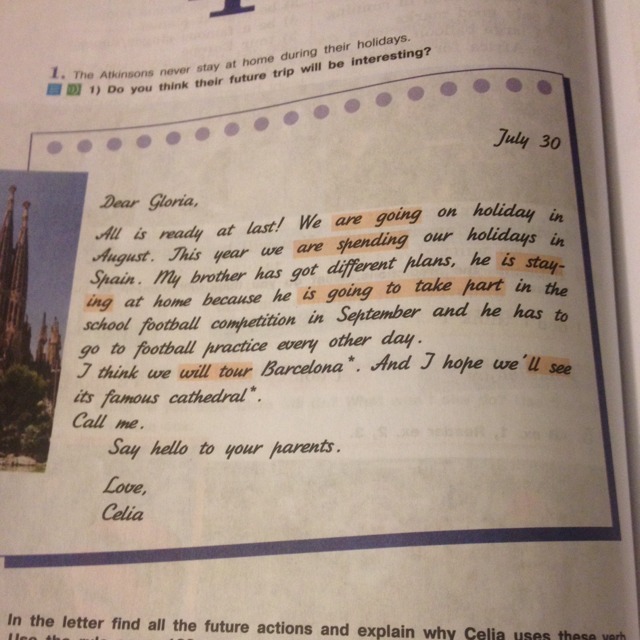 1. The Atkinsons never stay at home during their holidays.
1) Do you think their future trip will be interesting?
July 30
Dear Gloria,
All is ready at last! We are going on holiday in
August. This year we are spending our holidays in
Spain. My brother has got different plans, he is stay-
ing at home because he is going to take part in the
school football competition in September and he has to
go to football practice every other day.
I think we will tour Barcelona*. And I hope we'll see
its famous cathedral*.
Call me.
Say hello to your parents.
Love,
Celia
In the letter find all the future actions and explain why Celia uses these verb